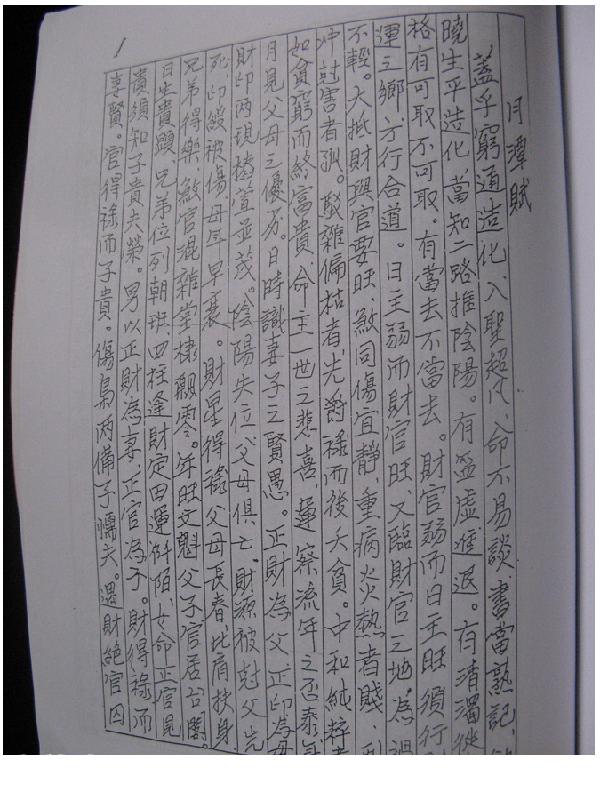 月潭賦
蓋乎窮通造化、入聖超凡、命不易談、書當熟記、
曉生平造化、當知二路推陰陽。有盈虛進退。有清濁從
格有可取不可取。有當去不當去。財官弱而日主旺須行
運之鄉、方行合道。日主弱而財官旺、又臨財官之地為過
不輕。大抵財與官要旺、煞司傷宜靜、重病炎熱者賤、刑
冲尅害者孤。駁雜偏枯者、先爵祿而後夭貧。中和純粹者
如貧窮而終富貴、命主一世之悲喜、運察流年之否泰年
月見父母之優劣。日時識妻子之賢愚。正財為父正印為母
財印两現椿萱並茂。陰陽失位、父母俱亡、財源被尅父先
死印綬被傷母年早喪。財星得祿父母長春、比肩扶身
兄弟得樂、煞官混雜堂棣飄零。年旺文魁父子官居台閣。
日生貴顯、兄弟位列朝班四柱逢財定田連阡陌、女命正官見
貴須知子貴夫榮。男以正財為妻、正官為子。財得祿而
妻賢。官得祿而子貴。傷梟两備子懦夫。遇財絕官囚
1